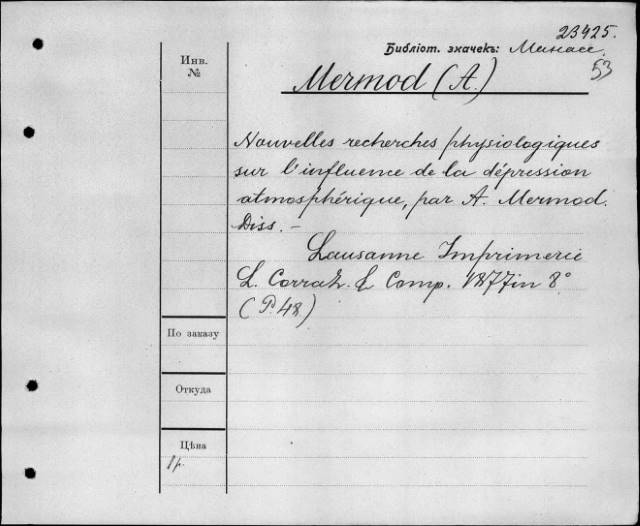 23425.
Библіот. значекъ: Минасс.
53
Инв.
№
Mermod (A.)
Nouvelles recherches physiologiques
sur l'influence de la dépression
atmosphérique, par A. Mermod.
Diss. –
Lausanne Imprimerie
L. Corraz & Comp. 1877 in 8°
(P. 48)
По заказу
Откуда
Цѣна
1 р.